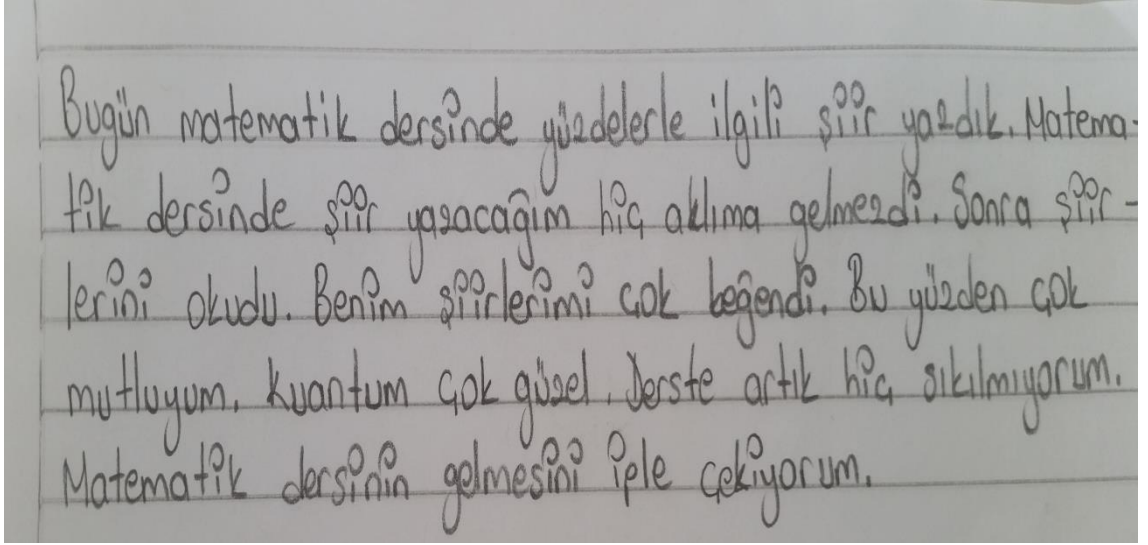 Bugün matematik dersinde yüzdelerle ilgili şiir yazdık. Matema-
tik dersinde şiir yazacağım hiç aklıma gelmezdi. Sonra şiir-
lerini okudu. Benim şiirlerimi çok beğendi. Bu yüzden çok
mutluyum. Kuantum çok güzel. Derste artık hiç sıkılmıyorum.
Matematik dersinin gelmesini iple çekiyorum.